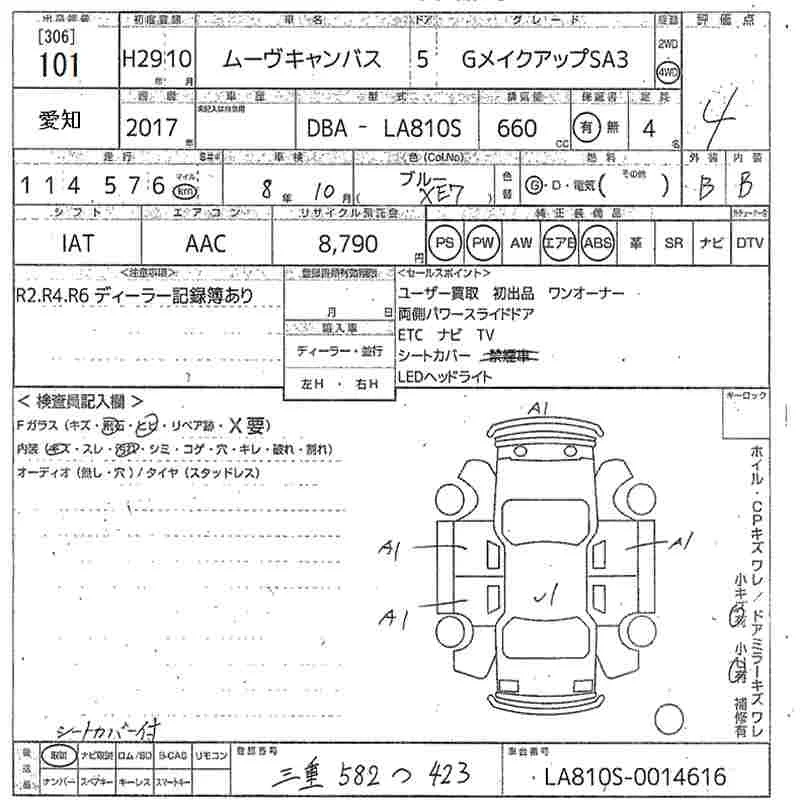 出品番号 初度登録 車名 ドア グレード 駆動 評価点
[306]
101 H29年10月 ムーヴキャンバス 5 GメイクアップSA3 2WD 4WD
4
愛知
年 車歴 型式 排気量 保証書 定員
未記入は自家用
2017年 DBA - LA810S 660cc 有 無 4名
走行 車検 色(Col.No) 色替 燃料 外装 内装
114576 マイル km 8年10月 ブルー XE7 G・D・電気(その他 ) B B
シフト エアコン リサイクル預託金 純正装備品
IAT AAC 8,790円 PS PW AW エアB ABS 革 SR ナビ DTV
<注意事項> <セールスポイント>
R2.R4.R6 ディーラー記録簿あり
月 日
輸入車
ディーラー・並行
左H ・ 右H
ユーザー買取 初出品 ワンオーナー
両側パワースライドドア
ETC ナビ TV
シートカバー 禁煙車
LEDヘッドライト
キーロック
< 検査員記入欄 >
Fガラス(キズ・飛石・ヒビ・リペア跡・X要)
内装(キズ・スレ・汚れ・シミ・コゲ・穴・キレ・破れ・割れ)
オーディオ(無し・穴)/タイヤ(スタッドレス)
A1
A1
A1
A1
U1
ホイル・CPキズワレ/ドアミラーキズワレ
小キズ有 小凹有 補修有
シートカバー付
後送品 取説 ナビ取説 ロム/SD B-CAS リモコン
ナンバー スペアキー キーレス スマートキー
登録番号
三重 582 つ 423
車台番号
LA810S-0014616